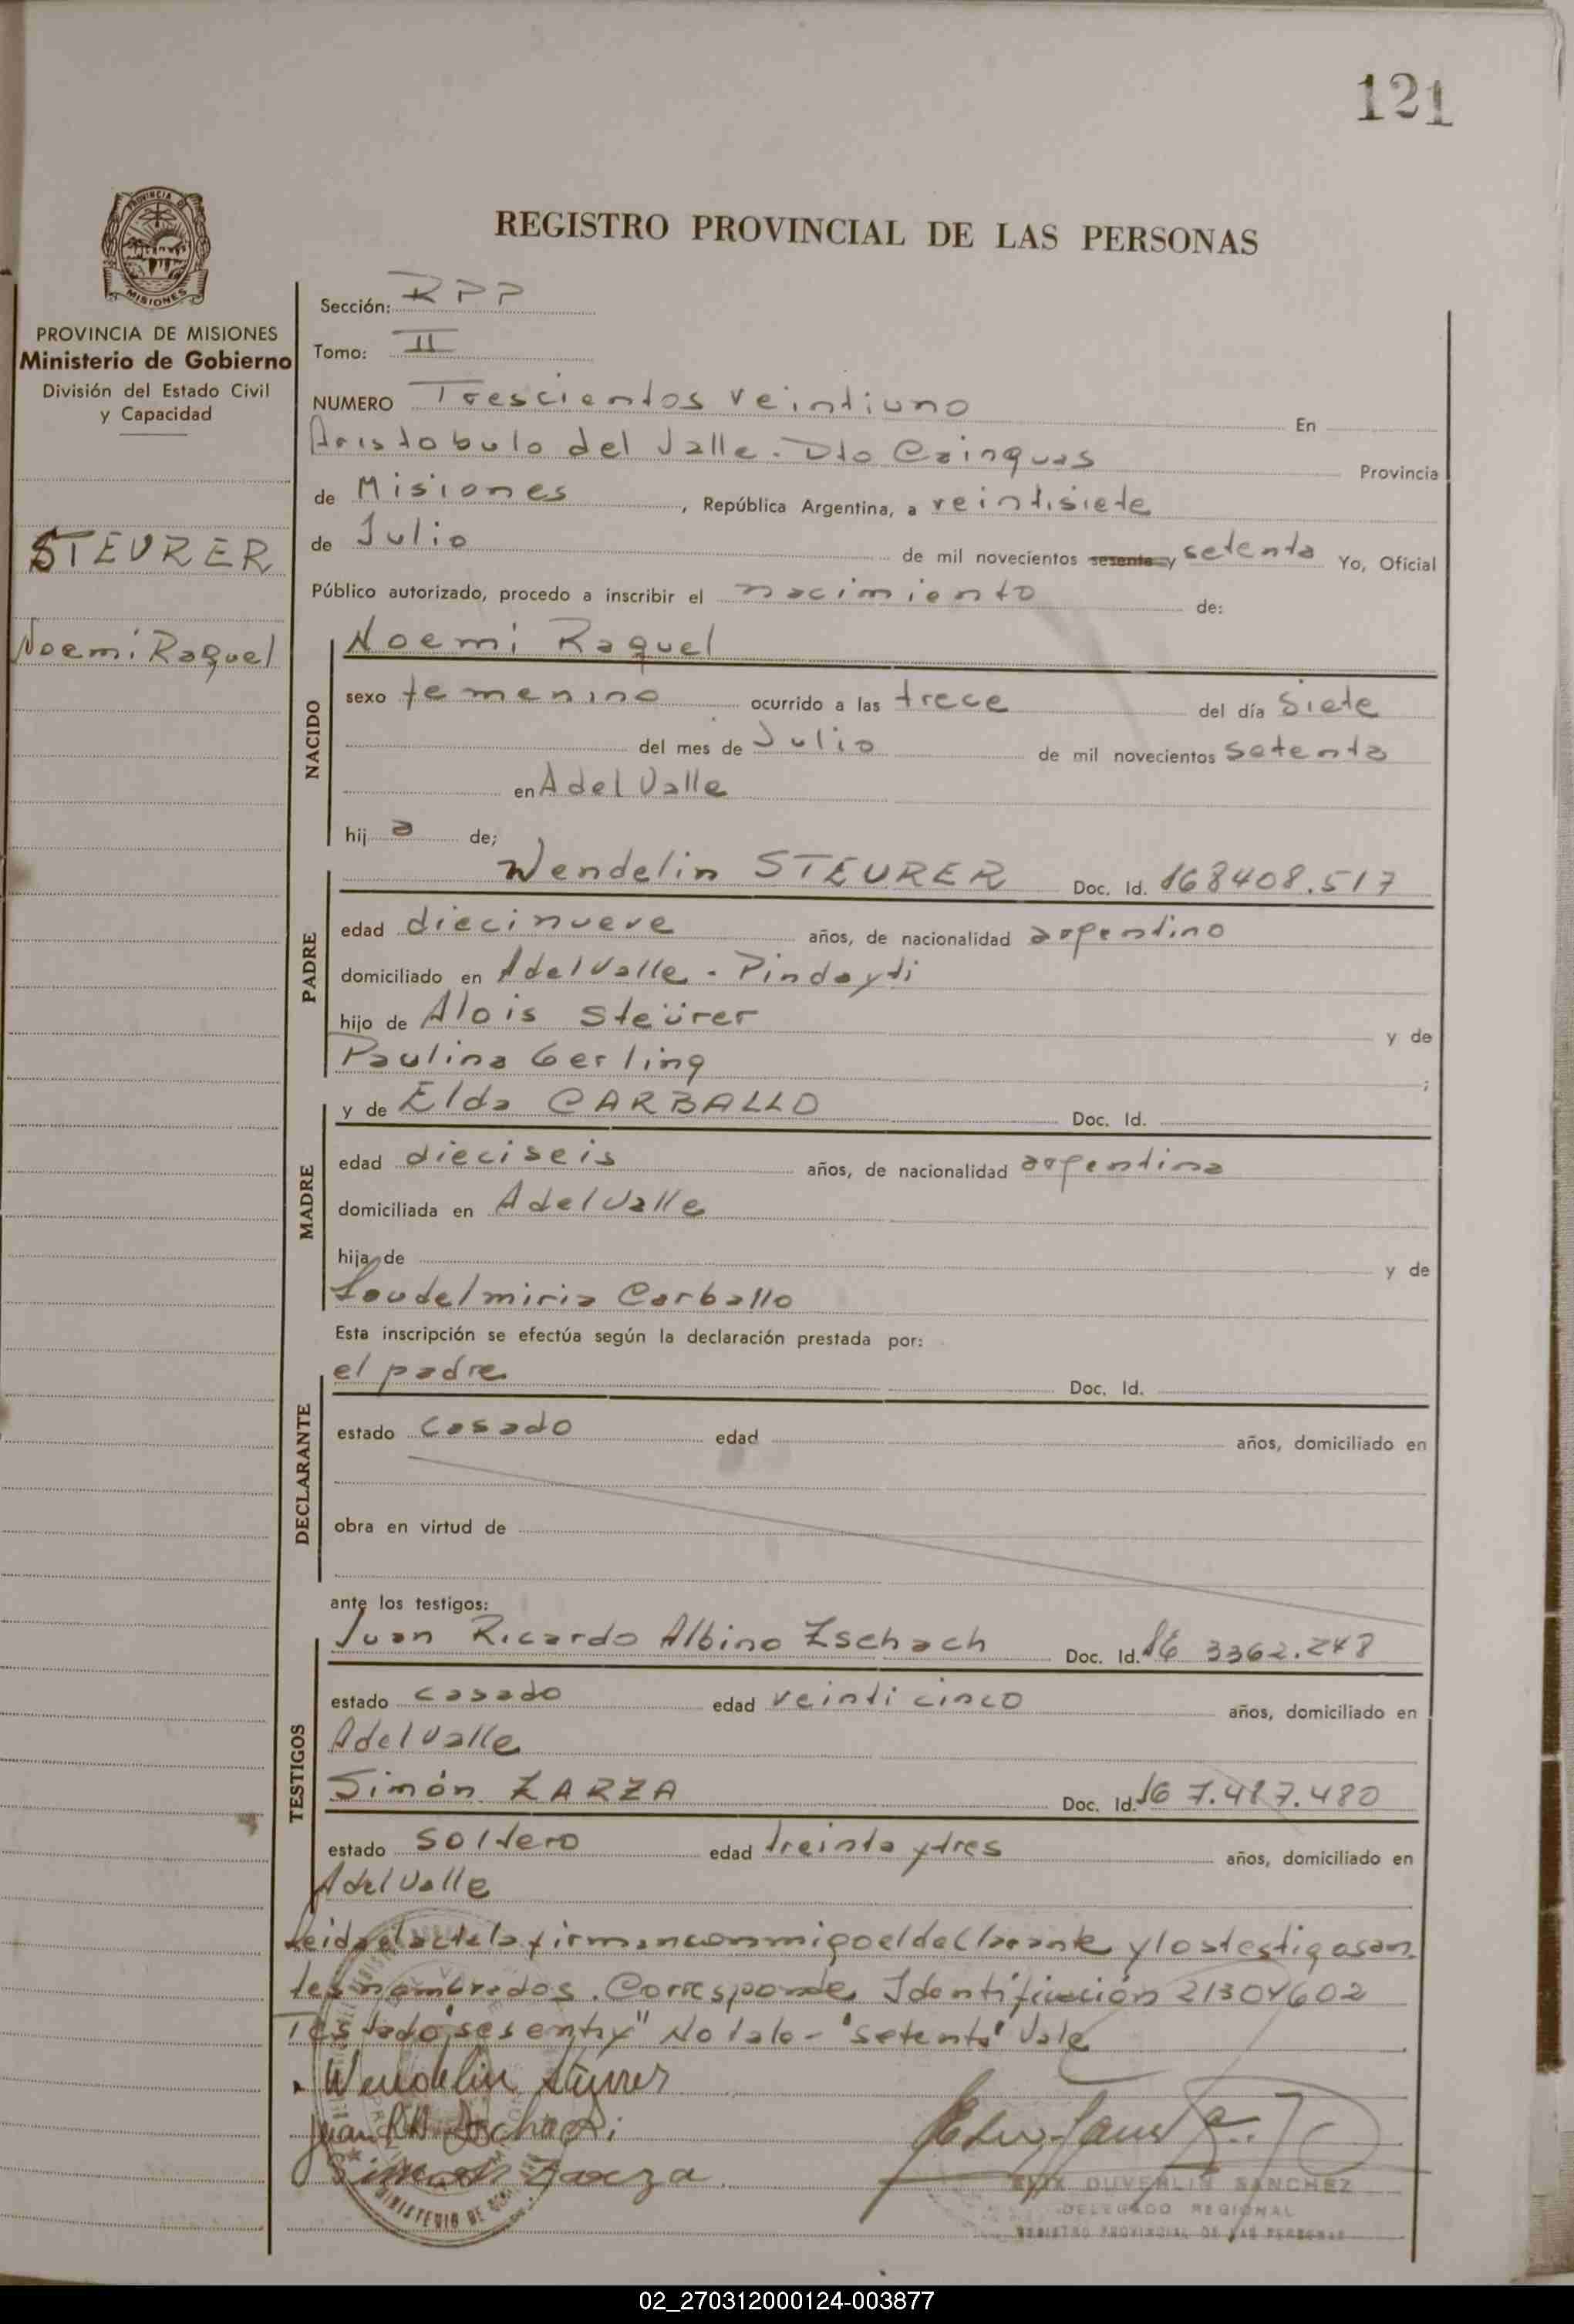 121
PROVINCIA DE
MISIONES
PROVINCIA DE MISIONES
Ministerio de Gobierno
División del Estado Civil
y Capacidad
STEURER
Noemi Raquel
REGISTRO PROVINCIAL DE LAS PERSONAS
Sección: RPP
Tomo: II
NUMERO Trescientos veintiuno En
Aristobulo del Valle. Dto Cainguas Provincia
de Misiones, República Argentina, a veintisiete
de Julio de mil novecientos sesenta y setenta Yo, Oficial
Público autorizado, procedo a inscribir el nacimiento de:
NACIDO
Noemi Raquel
sexo femenino ocurrido a las trece del día siete
del mes de Julio de mil novecientos setenta
en A del Valle
hij a de;
PADRE
Wendelin STEURER Doc. Id. 168408.517
edad diecinueve años, de nacionalidad argentino
domiciliado en A del Valle - Pindayti
hijo de Alois Steürer y de
Paulina Gerling ;
MADRE
y de Elda CARBALLO Doc. Id.
edad dieciseis años, de nacionalidad argentina
domiciliada en A del Valle
hija de y de
Loudelmiria Carballo
Esta inscripción se efectúa según la declaración prestada por:
DECLARANTE
el padre Doc. Id.
estado casado edad años, domiciliado en
obra en virtud de
ante los testigos:
TESTIGOS
Juan Ricardo Albino Zschach Doc. Id. 3362.248
estado casado edad veinticinco años, domiciliado en
A del Valle
Simón ZARZA Doc. Id. 7.487.480
estado soltero edad treinta y tres años, domiciliado en
A del Valle
Leida el acta la firman conmigo el declarante y los testigos an
tes nombrados. Corresponde Identificación 21304602
Testado "sesenta y" No Vale - "setenta" Vale
Wendelin Steurer
Juan R A Zschach
Simon Zarza
MINISTERIO DE
DUVERLIN SANCHEZ
DELEGADO REGIONAL
REGISTRO PROVINCIAL DE LAS PERSONAS
02_270312000124-003877